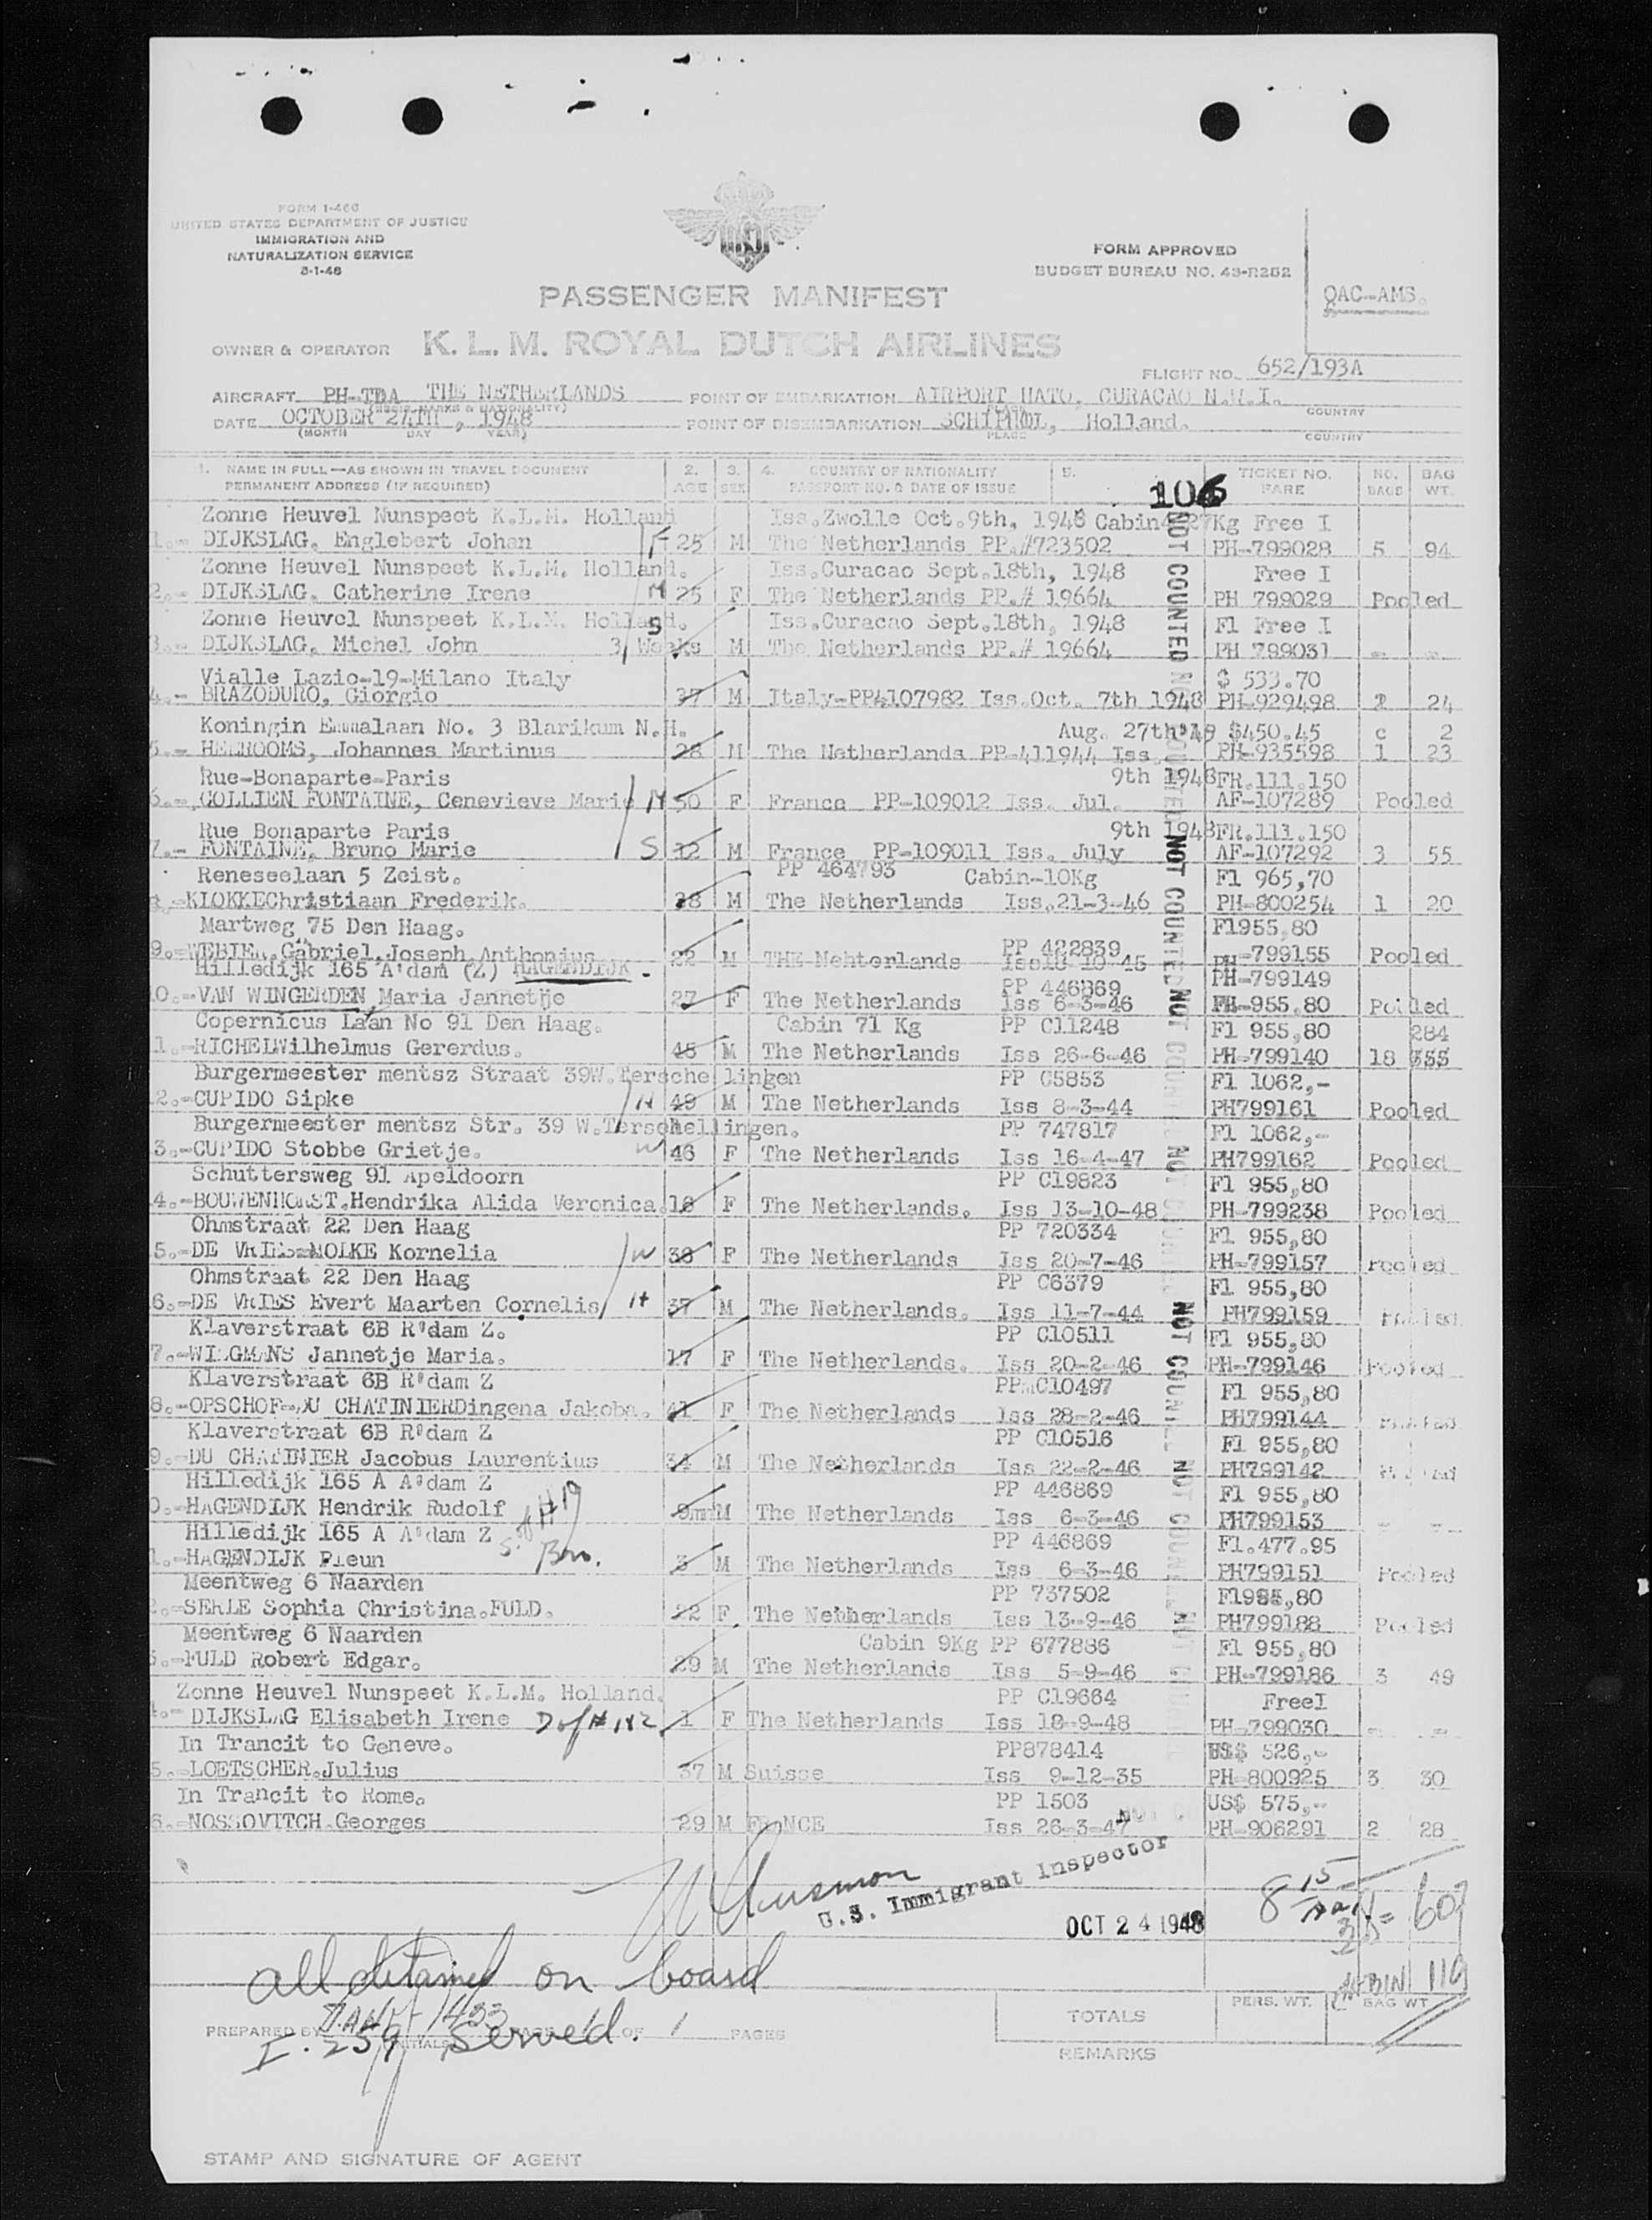 FORM I-466
UNITED STATES DEPARTMENT OF JUSTICE
IMMIGRATION AND
NATURALIZATION SERVICE
FORM APPROVED
BUDGET BUREAU NO. 43-R252
OAC-AMS.
PASSENGER MANIFEST
OWNER & OPERATOR K. L. M. ROYAL DUTCH AIRLINES
FLIGHT NO. 652/193A
AIRCRAFT PH-TDA THE NETHERLANDS POINT OF EMBARKATION AIRPORT HATO, CURACAO N.W.I.
(REGIS. MARKS & NATIONALITY) PLACE COUNTRY
DATE OCTOBER 24TH, 1948 POINT OF DISEMBARKATION SCHIPHOL, Holland.
(MONTH DAY YEAR) PLACE COUNTRY
1. NAME IN FULL—AS SHOWN IN TRAVEL DOCUMENT 2. 3. 4. COUNTRY OF NATIONALITY 5. TICKET NO. NO. BAG
PERMANENT ADDRESS (IF REQUIRED) AGE SEX PASSPORT NO. & DATE OF ISSUE 106 FARE BAGS WT.
Zonne Heuvel Nunspeet K.L.M. Holland Iss.Zwolle Oct.9th, 1948 Cabin 27Kg Free I
1.- DIJKSLAG, Englebert Johan F 25 M The Netherlands PP.#723502 PH-799028 5 94
Zonne Heuvel Nunspeet K.L.M. Holland. Iss.Curacao Sept.18th, 1948 Free I
2.- DIJKSLAG, Catherine Irene M 25 F The Netherlands PP.# 19664 PH 799029 Pooled
Zonne Heuvel Nunspeet K.L.M. Holland. S Iss.Curacao Sept.18th, 1948 Fl Free I
3.- DIJKSLAG, Michel John 3 Weeks M The Netherlands PP.# 19664 PH 799031 - -
Vialle Lazio-19-Milano Italy $ 533.70
4.- BRAZODURO, Giorgio 37 M Italy-PP4107982 Iss.Oct. 7th 1948 PH-929498 2 24
Koningin Emmalaan No. 3 Blarikum N.H. Aug. 27th'48 $450.45 c 2
5.- HELROOMS, Johannes Martinus 28 M The Netherlands PP-411944 Iss. PH-935598 1 23
Rue-Bonaparte-Paris 9th 1948 FR.111.150
6.- COLLIEN FONTAINE, Genevieve Marie M 50 F France PP-109012 Iss. Jul. AF-107289 Pooled
Rue Bonaparte Paris 9th 1948 FR.111.150
7.- FONTAINE, Bruno Marie S 12 M France PP-109011 Iss. July AF-107292 3 55
Reneseelaan 5 Zeist. PP 464793 Cabin-10Kg Fl 965,70
-KLOKKEChristiaan Frederik. 38 M The Netherlands Iss.21-3-46 PH-800254 1 20
Martweg 75 Den Haag. PP 422839 Fl955,80
9.-WEBIER.Gabriel,Joseph Anthonius 22 M THE Nehterlands Iss18-10-45 PH-799155 Pooled
Hilledijk 165 A'dam (Z) HAGENDIJK. PP 446869 PH-799149
0.-VAN WINGERDEN Maria Jannetje 27 F The Netherlands Iss 6-3-46 FH-955.80 Pooled
Copernicus Laan No 91 Den Haag. Cabin 71 Kg PP C11248 Fl 955,80 284
1.-RICHELWilhelmus Gererdus. 45 M The Netherlands Iss 26-6-46 PH-799140 18 355
Burgermeester mentsz Straat 39W.Terschellingen PP C5853 Fl 1062,-
2.-CUPIDO Sipke H 49 M The Netherlands Iss 8-3-44 PH799161 Pooled
Burgermeester mentsz Str. 39 W.Terschellingen. PP 747817 Fl 1062,-
3.-CUPIDO Stobbe Grietje. W 46 F The Netherlands Iss 16-4-47 PH799162 Pooled
Schuttersweg 91 Apeldoorn PP C19823 Fl 955,80
4.-BOUWENHORST.Hendrika Alida Veronica. 16 F The Netherlands. Iss 13-10-48 PH-799238 Pooled
Ohmstraat 22 Den Haag PP 720334 Fl 955,80
5.-DE VRIES-MOLKE Kornelia W 38 F The Netherlands Iss 20-7-46 PH-799157 Pooled
Ohmstraat 22 Den Haag PP C6379 Fl 955,80
6.-DE VRIES Evert Maarten Cornelis H 37 M The Netherlands. Iss 11-7-44 PH799159 Pooled
Klaverstraat 6B R'dam Z. PP C10511 Fl 955,80
7.-WILGMANS Jannetje Maria. 17 F The Netherlands. Iss 20-2-46 PH-799146 Pooled
Klaverstraat 6B R'dam Z PP C10497 Fl 955,80
8.-OPSCHOF-DU CHATINIERDingena Jakoba. 41 F The Netherlands Iss 28-2-46 PH799144 Pooled
Klaverstraat 6B R'dam Z PP C10516 Fl 955,80
9.-DU CHATINIER Jacobus Laurentius 34 M The Netherlands Iss 22-2-46 PH799142 Pooled
Hilledijk 165 A A'dam Z PP 446869 Fl 955,80
0.-HAGENDIJK Hendrik Rudolf 9m M The Netherlands Iss 6-3-46 PH799153 - -
Hilledijk 165 A A'dam Z S. of #19 PP 446869 Fl.477.95
1.-HAGENDIJK Pleun Bro. 3 M The Netherlands Iss 6-3-46 PH799151 Pooled
Meentweg 6 Naarden PP 737502 Fl955,80
2.-SERLE Sophia Christina.FULD. 22 F The Netherlands Iss 13-9-46 PH799188 Pooled
Meentweg 6 Naarden Cabin 9Kg PP 677886 Fl 955,80
3.-FULD Robert Edgar. 29 M The Netherlands Iss 5-9-46 PH-799186 3 49
Zonne Heuvel Nunspeet K.L.M. Holland. PP C19664 FreeI
4.- DIJKSLAG Elisabeth Irene D of # 1&2 1 F The Netherlands Iss 18-9-48 PH-799030 - -
In Trancit to Geneve. PP878414 US$ 526,-
5.-LOETSCHER.Julius 37 M Suisse Iss 9-12-35 PH-800925 3 30
In Trancit to Rome. PP 1503 US$ 575,-
6.-NOSSOVITCH.Georges 29 M FRANCE Iss 26-3-47 PH-906291 2 28
NOT COUNTED NOT COUNTED NOT COUNTED NOT COUNTED
U.S. Immigrant Inspector
OCT 24 1948
8 15
= 607
all detained on board
CABIN 116
PERS. WT. BAG WT.
TOTALS
PREPARED BY PAGE 1 OF 1 PAGES
I. 259 Served.
REMARKS
STAMP AND SIGNATURE OF AGENT